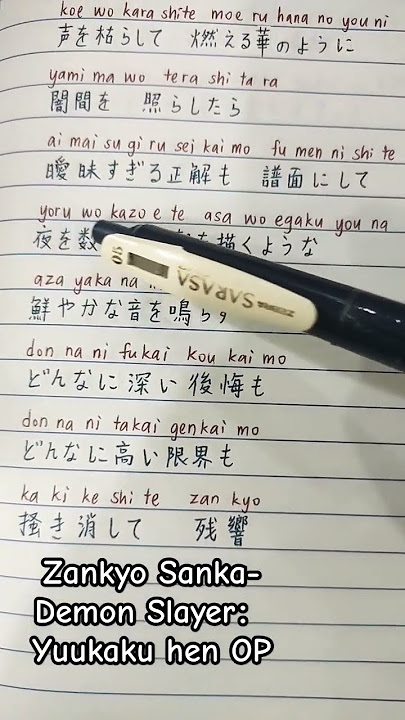 koe wo kara shite moe ru hana no you ni
声を枯らして 燃える華のように
yami ma wo tera shi ta ra
闇間を 照らしたら
ai mai su gi ru sei kai mo fu men ni shi te
曖昧すぎる正解も 譜面にして
yoru wo kazo e te asa wo egaku you na
夜を数 を描くような
aza yaka na
鮮やかな音を鳴らす
SARASA
ZEBRA
don na ni fukai kou kai mo
どんなに深い後悔も
don na ni takai genkai mo
どんなに高い限界も
ka ki ke shi te zan kyo
掻き消して 残響
Zankyo Sanka-
Demon Slayer:
Yuukaku hen OP